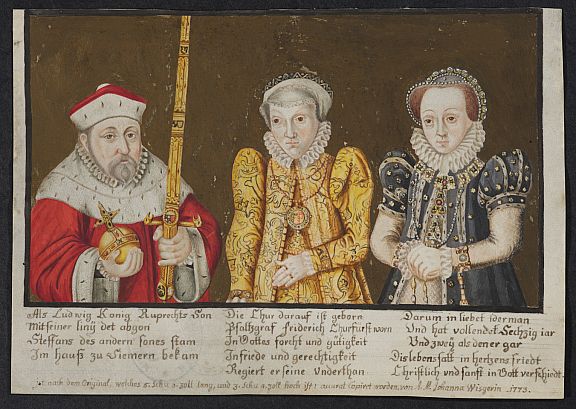 Als Ludwig König Ruprechts Son
Mit seiner linij det abgon
Steffans des andern sones stam
Im hauß zu Siemern bekam
Die Chur darauf ist geborn
Pfaltzgraf friderich Churfürst worn
In Gottes forcht und gütigkeit
In friede und gerechtigkeit
Regiert er seine Underthan
Darum in liebet iderman
Und hat vollendet Sechzig iar
Und zweÿ als dener gar
Dis lebens satt in hertzens friedt
Christlich und sanft in Gott verschiedt.
ist nach dem Original, welches 5. Schu 2. Zoll lang, und 3. Schu 2. Zoll hoch ist: accurat copirt worden, von I. M. Johanna Wisgerin. 1773.